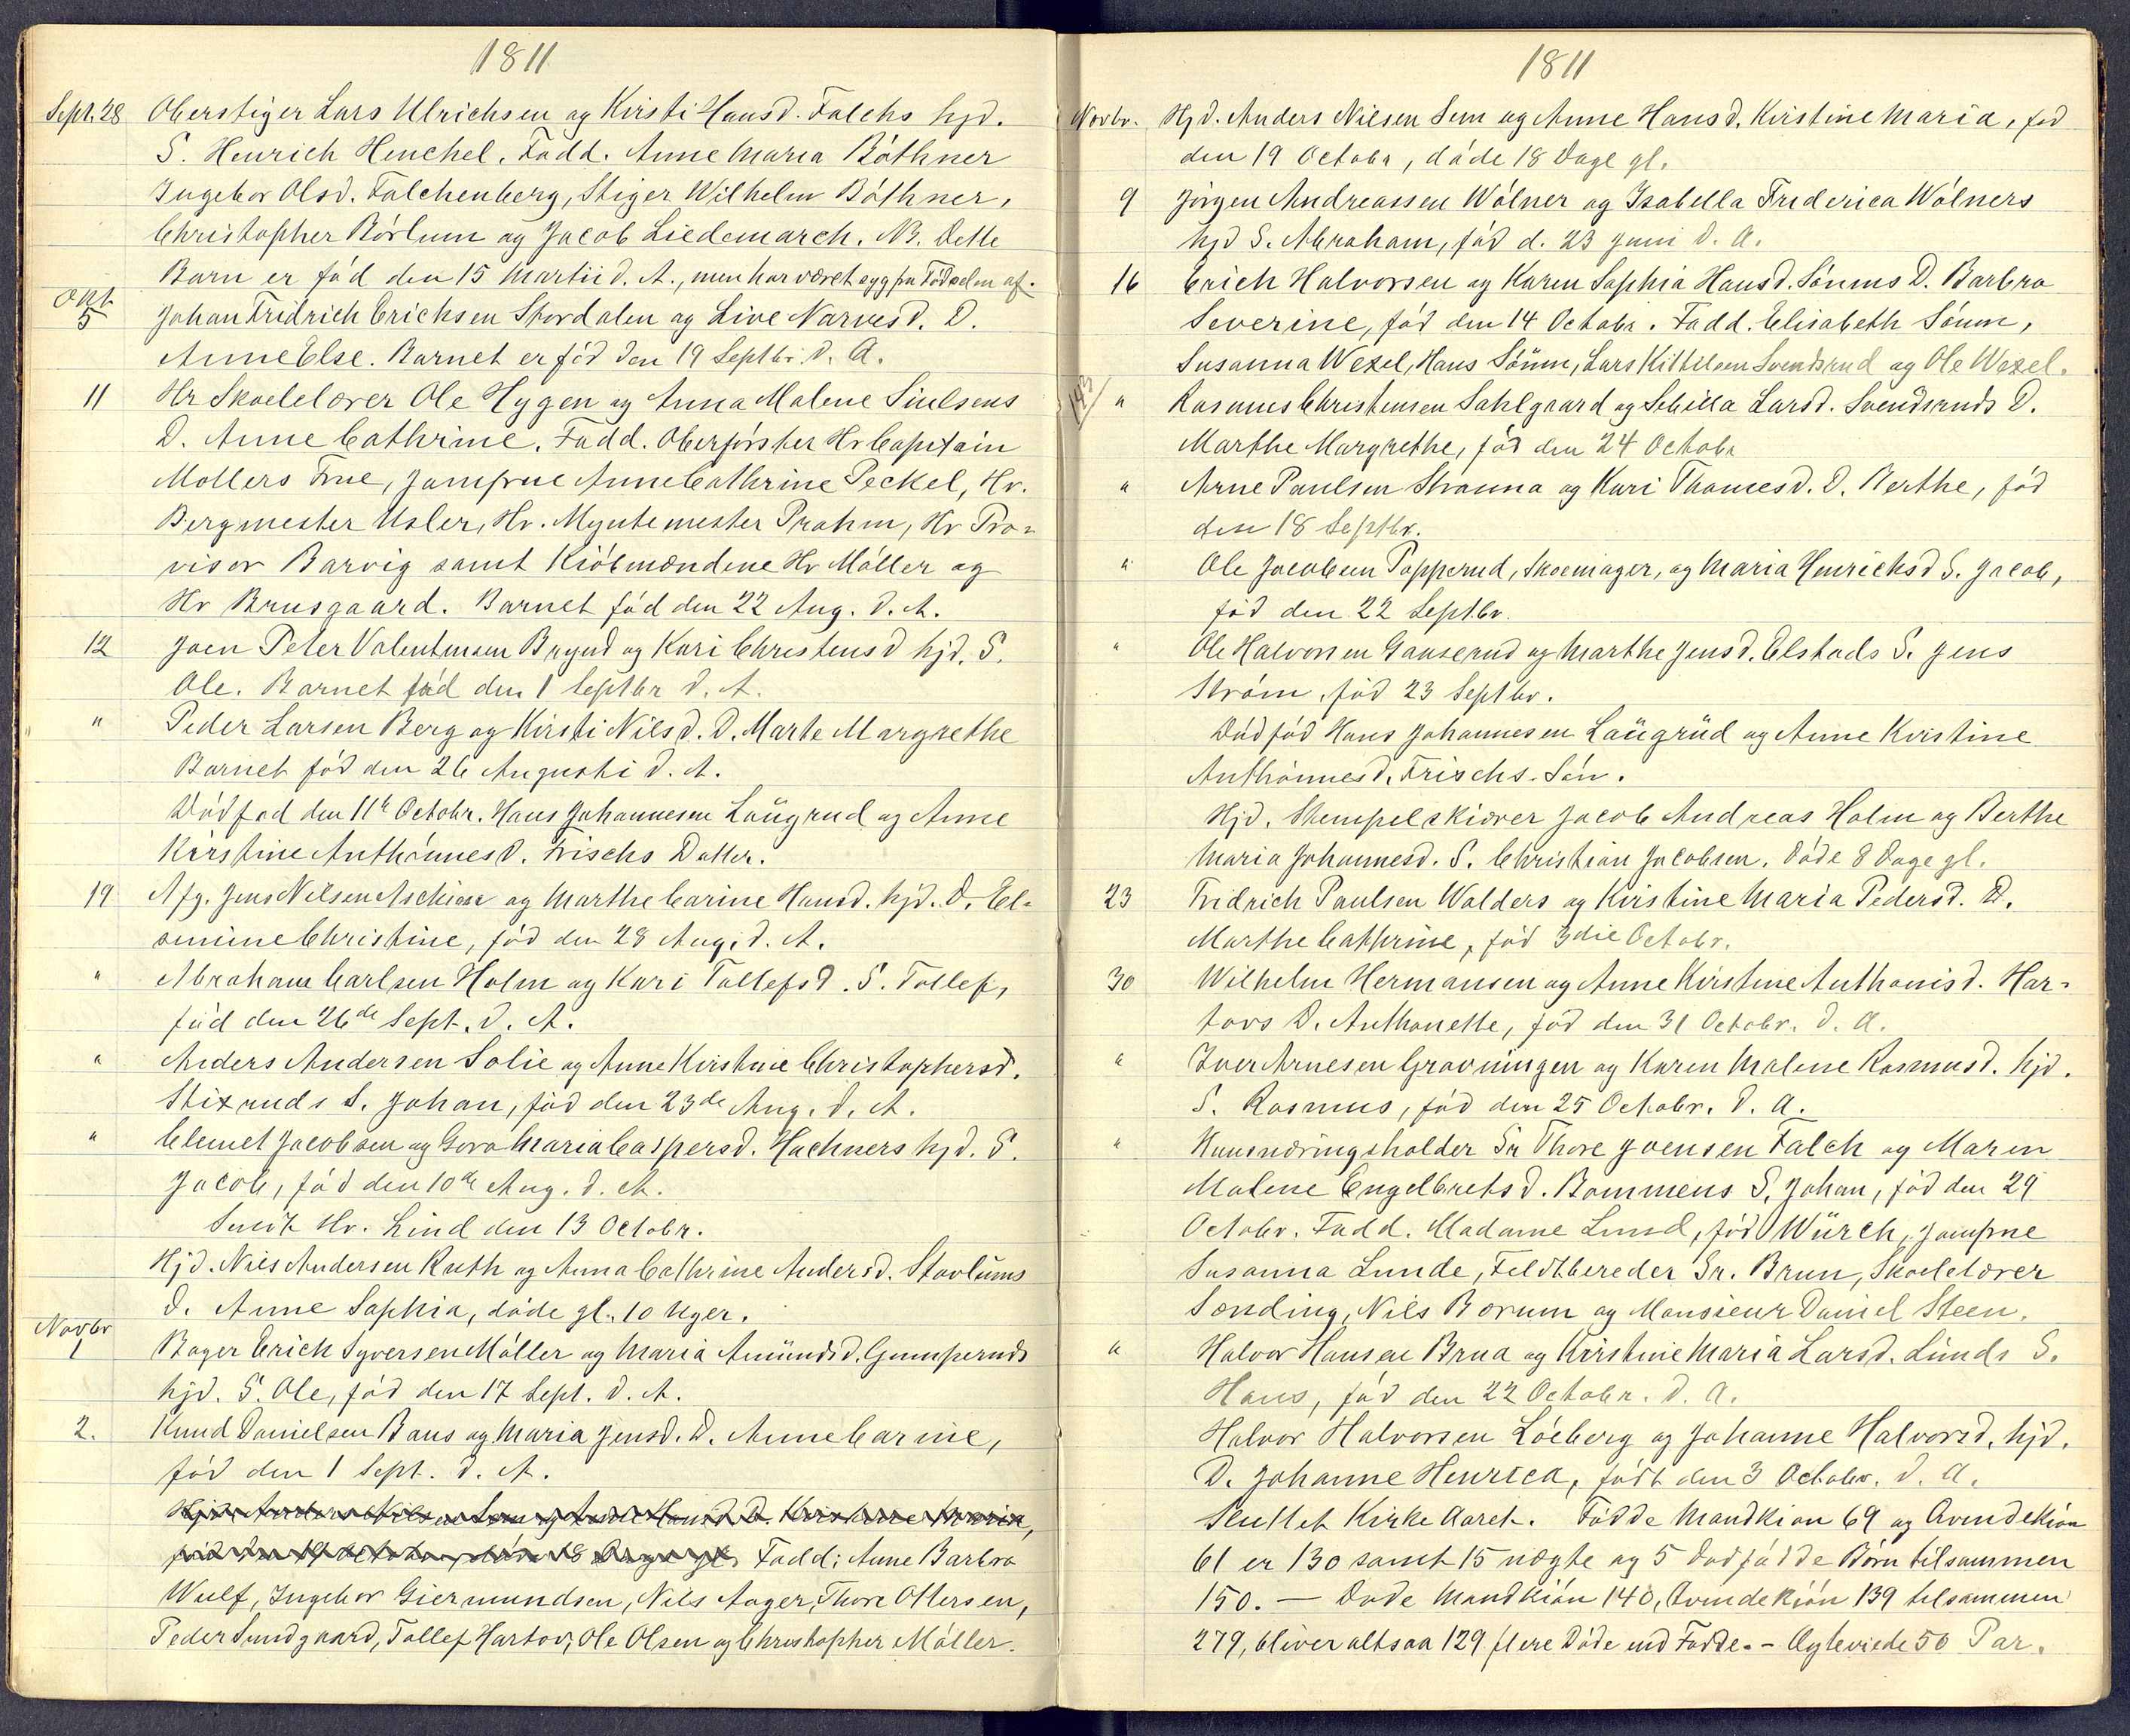 1811
Sept. 28 Oberstiger Lars Ulrichsen og Kirsti Hansd. Falchs hjd.
S. Henrich Henchel. Fadd. Anne Maria Böthner
Ingebor Olsd. Falchenberg, Stiger Wilhelm Böthner,
Christopher Börlum og Jacob Liedemarch. NB. Dette
Barn er fód den 15 Martii d. A., men har været syg fra Födselen af.
Okt 5 Johan Fridrich Erichsen Stordalen og Live Narvesd. D.
Anne Else. Barnet er fód den 19 Septbr. d. A.
11 Hr Skoelelærer Ole Hygen og Anna Malene Siulsens
D. Anne Cathrine. Fadd. Oberförster Hr Capitain
Mollers Frue, Jomfrue Anne Cathrine Peckel, Hr.
Bergmester Usler, Hr. Myntemester Prahm, Hr Pro-
visor Barvig samt Kióbmændene Hr Móller og
Hr Brusgaard. Barnet fód den 22 Aug. d. A.
12 Joen Peter Valentinsen Brynd og Kari Christensd hjd. S.
Ole. Barnet fód den 1 Septbr d. A.
" Peder Larsen Berg og Kirsti Nilsd. D. Marte Margrethe
Barnet fód den 26 Augusti d. A.
Dódfod den 11te Octobr. Hans Johannesen Laügrud og Anne
Kirstine Anthónnesd. Frischs Datter.
19 Afg. Jens Nilsen Aschiær og Marthe Carine Hansd. hjd. D. El-
senine Christine, fód den 28 Aug. d. A.
" Abraham Carlsen Holm og Kari Tollefsd. S. Tollef,
fúd den 26de Sept. d. A.
" Anders Andersen Solie og Anne Kirstine Christophersd.
Stixruds S. Johan, fód den 23de Aug. d. A.
" Clemet Jacobsen og Gora Maria Caspersd. Hachners hjd. S.
Jacob, fód den 10de Aug. d. A.
Smidt Hr. Lind den 13 Octobr.
Hjd. Niels Andersen Ruth og Anna Cathrine Andersd. Stavlums
D. Anne Sophia, dóde gl. 10 Uger.
Novbr 1 Bager Erich Syversen Móller og Maria Amündsd. Gumperuds
hjd. S. Ole, fód den 17 Sept. d. A.
2. Knud Danielsen Baus og Maria Jensd. D. Anne Carine,
fód den 1 Sept. d. A.
Hjd. Anders Nilsen Sem og Anne Hansd. D. Kirstine Maria,
fód den 19 October, dóde 18 Dage gl. Fadd: Anne Barbra
Wulf, Ingebor Giermundsen, Nils Aager, Thore Ottersen,
Peder Sundgaard, Tollef Hartov, Ole Olsen og Christopher Móller.
1811
Novbr. Hjd. Anders Nilsen Sem og Anne Hansd. Kirstine Maria, fod
den 19 Octobr, dóde 18 Dage gl.
9 Jórgen Andreassen Wólner og Isabella Friderica Wólners
hjd S. Abraham, fód d. 23 Juni d. A.
16 Erich Halvorsen og Karen Sophia Hansd. Sónms D. Barbra
Severine, fód den 14 Octobr. Fadd. Elisabeth Sónm,
Susanna Wexel, Hans Sönm, Lars Kittilsen Svendsrud og Ole Wexel.
" Rasmus Christensen Sahlgaard og Sebilla Larsd. Svendsruds D.
Marthe Margrethe, fód den 24 Octobr
" Arne Paulsen Stranna og Kari Thomesd. D. Berthe, fód
den 18 Septbr.
" Ole Jacobsen Popperud, Skoemager, og Maria Henrichsd S. Jacob,
fód den 22 Septbr.
" Ole Halvorsen Gauserud og Marthe Jensd. Elstads S. Jens
Stróm, fód 23 Septbr.
Dódfód Hans Johannesen Laügrüd og Anne Kristine
Anthónnesd. Frischs Són.
Hjd. Stempelskiærer Jacob Andreas Holm og Berthe
Maria Johannesd. S. Christian Jacobsen. dóde 8 Dage gl.
23 Fridrich Paulsen Walders og Kirstine Maria Pedersd. D.
Marthe Cathrine, fód 3die Octobr.
30 Wilhelm Hermansen og Anne Kirstine Anthonisd. Har-
tovs D. Anthonette, fód den 31 Octobr. d. A.
" Iver Arnesen Gravningen og Karen Malene Rasmusd. hjd.
S. Rasmus, fód den 25 Octobr. d. A.
" Huusnæringsholder Sr Thore Joensen Falch og Maren
Malene Engelbretsd. Bommens S. Johan, fód den 29
Octobr. Fadd. Madame Lund, fód Würch, Jomfrue
Susanna Lunde, Feldtbereder Sr. Brun, Skoelelærer
Sending, Nils Borum og Monsieur Daniel Steen.
" Halvor Hansen Brua og Kirstine Maria Larsd. Lunds S.
Hans, fód den 22 Octobr. d. A.
Halvor Halvorsen Lóeberg og Johanne Halvorsd. hjd.
D. Johanne Henrica, födt den 3 Octobr. d. A.
Sluttet Kirke Aaret. Fódde Mandkion 69 og Qvindekión
61 er 130 samt 15 uægte og 5 dodfódde Börn tilsammen
150. — Dode Mandkión 140, Qvindekión 139 tilsammen
279, bliver altsaa 129 flere Dóde end Fodde. - Ægteviede 50 Par.